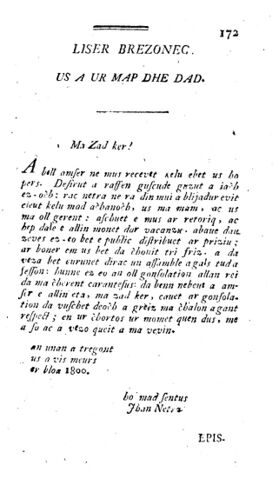 172
LISER BREZONEC.
US A UR MAP DHE DAD.
Ma Zad ker!
A bell amser ne mus recevet kelu ebet us ho
pers. Desirut a raffen guscude guzut a iach
ez-och: rac netra ne ra din mui a blijadur evit
cieut kelu mad achanoch, us ma mam, ac us
ma oll gerent: aschuet e mus ar retoriq, ac
hep dale e allin monet dar vacanzu. abaue dau
zeves ez-to bet e public distribuet ar priziu;
ar boner em us bet da chouit tri friz. a da
veza bet curunet dirac un assamble agals tuda
sesson: hunne ez eo an oll gonsolation allan rei
da ma cherent carantesus: da benn nebent a am-
ser e allin eta, ma zad ker, cauet ar gonsola-
tion da vuschet deoch a greiz ma chalon agant
respect; en ur chortos ur momet quen dus, me
a so ac a vezo queit a ma vevin.
an unan a tregont
us a vis meurs
er bloa 1800.
ho mad sentus
Jhan Netra
EPIS.